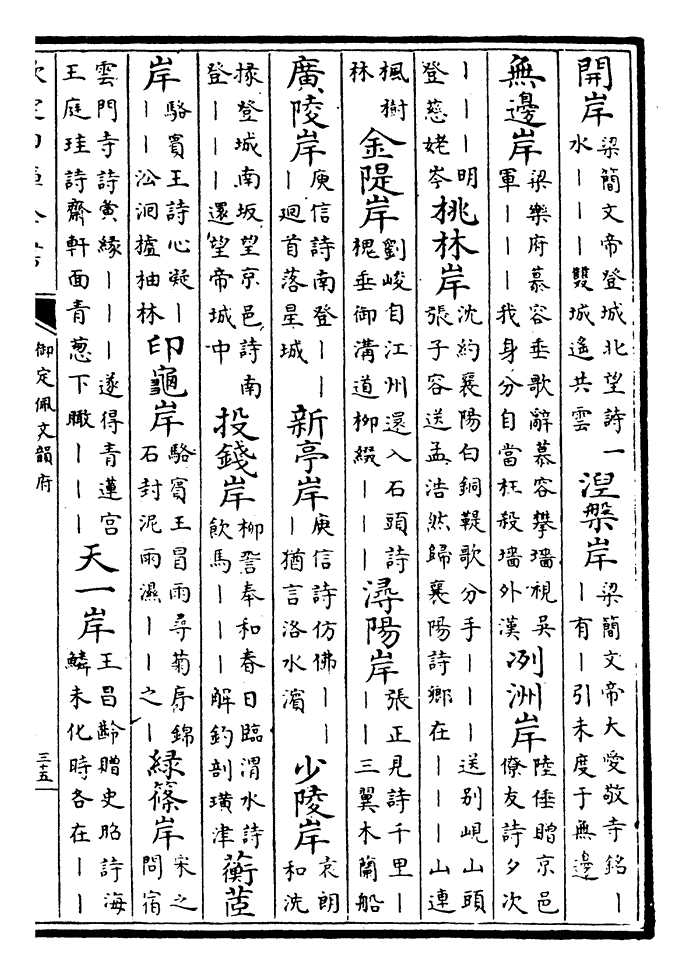 開岸梁簡文帝登城北望詩一水丨丨丨雙城遙共雲涅槃岸梁簡文帝大愛敬寺銘丨丨有丨引未度于無邊
無邊岸梁樂府慕容垂歌辭慕容攀墻視吳軍丨丨丨我身分自當枉殺墻外漢冽洲岸陸倕贈京邑僚友詩夕次
丨丨丨明登慈姥岑桃林岸沈約襄陽白銅鞮歌分手丨丨丨送別峴山頭張子容送孟浩然歸襄陽詩鄉在丨丨丨山連
楓樹林金隄岸劉峻自江州還入石頭詩槐垂御溝道柳綴丨丨丨潯陽岸張正見詩千里丨丨丨三翼木蘭船
廣陵岸庾信詩南登丨丨丨迴首落星城新亭岸庾信詩仿佛丨丨丨猶言洛水濱少陵岸袁朗和洗
掾登城南坂望京邑詩南登丨丨丨還望帝城中投錢岸柳䛒奉和春日臨渭水詩飲馬丨丨丨解釣剖璜津蘅茝
岸駱賓王詩心凝丨丨丨沿洄攎柚林印龜岸駱賓王冒雨尋菊序錦石封泥雨濕丨丨之丨綠篠岸宋之問宿
雲門寺詩夤緣丨丨丨遂得青蓮宮王庭珪詩齋軒面青葱下瞰丨丨丨天一岸王昌齡贈史昭詩海鱗未化時各在丨丨
御定佩文韻府
三十五